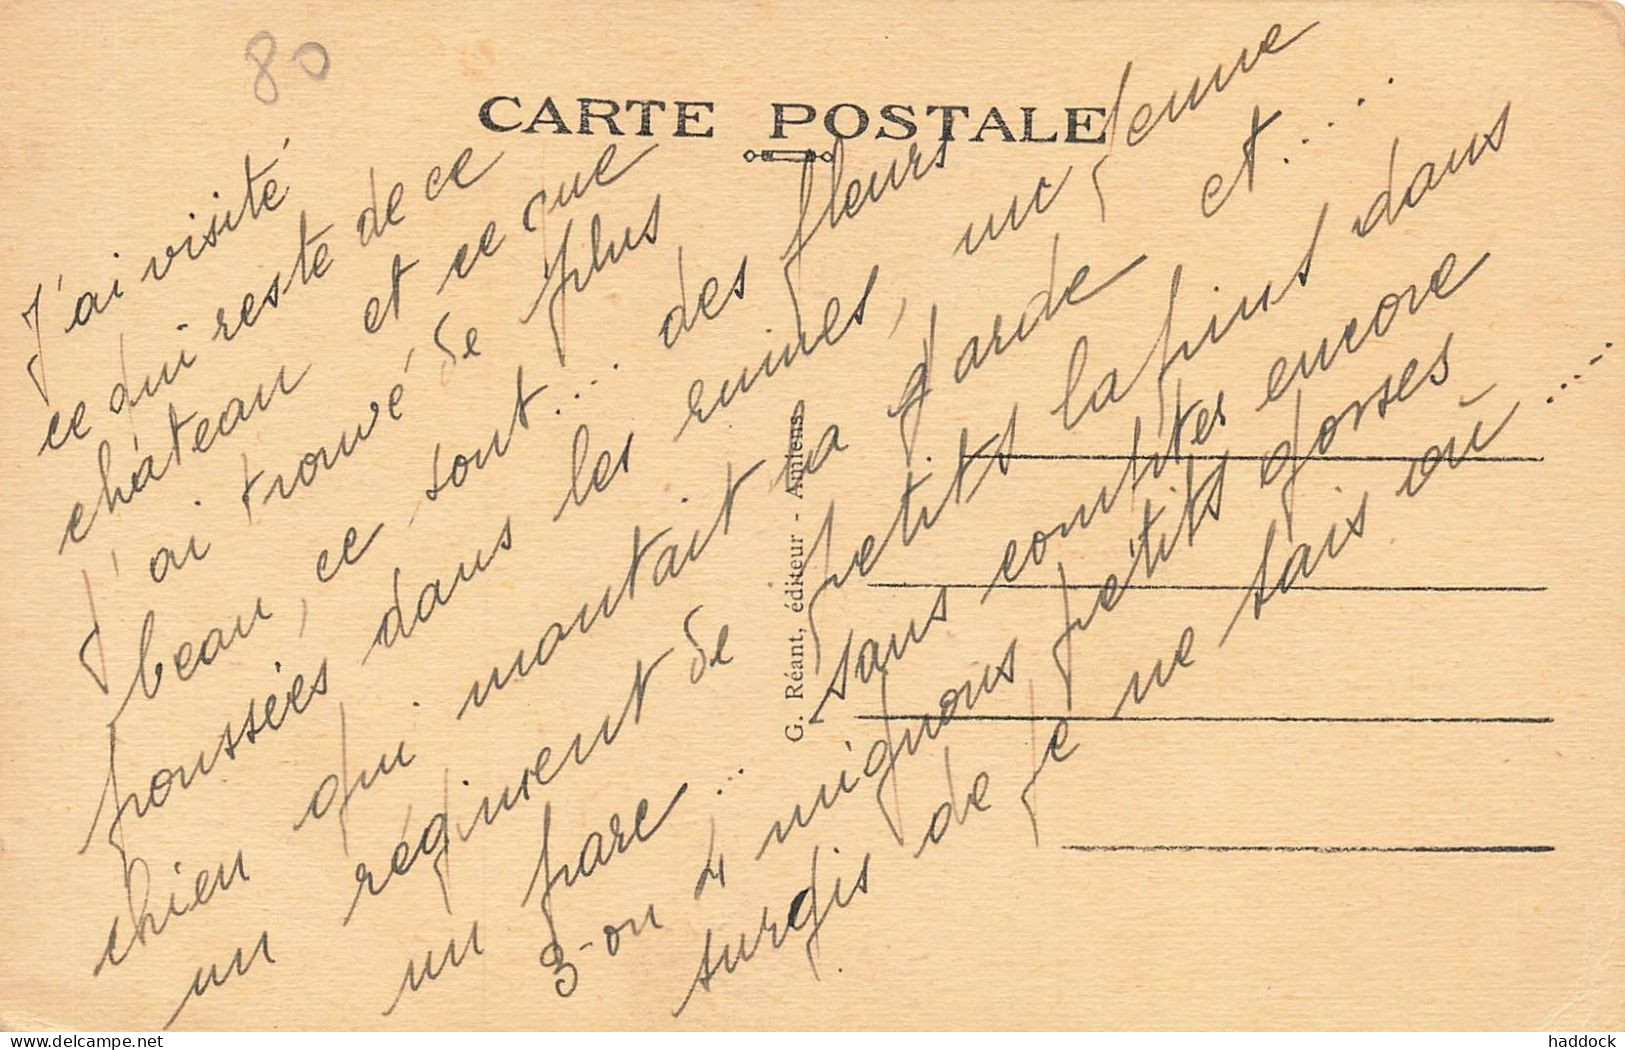 80
CARTE POSTALE
J'ai visité
ce qui reste de ce
château et ce que
j'ai trouvé de plus
beau, ce sont.... des fleurs
poussées dans les ruines, un jeune
chien qui montait la garde et....
un régiment de petits lapins dans
un parc... sans compter encore
3 ou 4 mignons petits gosses
surgis de je ne sais où.....
G. Réant, éditeur - Amiens
delcampe.net
haddock